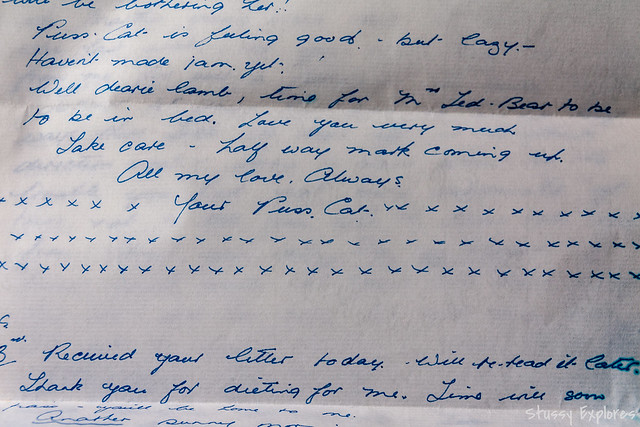 be bothering her!!
Puss. Cat is feeling good. - but lazy. -
Haven't made jam. yet.
Well dearie lamb, time for Mrs Ted. Bear to be
to be in bed. Love you very much.
Take care - half way mark coming up.
All my love. Always.
x x x x x x Your Puss. Cat. x x x x x x x x x x x x
x x x x x x x x x x x x x x x x x x x x x x x x x x x x
x x x x x x x x x x x x x x x x x x x x x x x x x x x x
Received your letter today. Will re-read it later.
Thank you for dieting for me. Time will soon
pass - you'll be home to me.
Another sunny
Stussy Explores